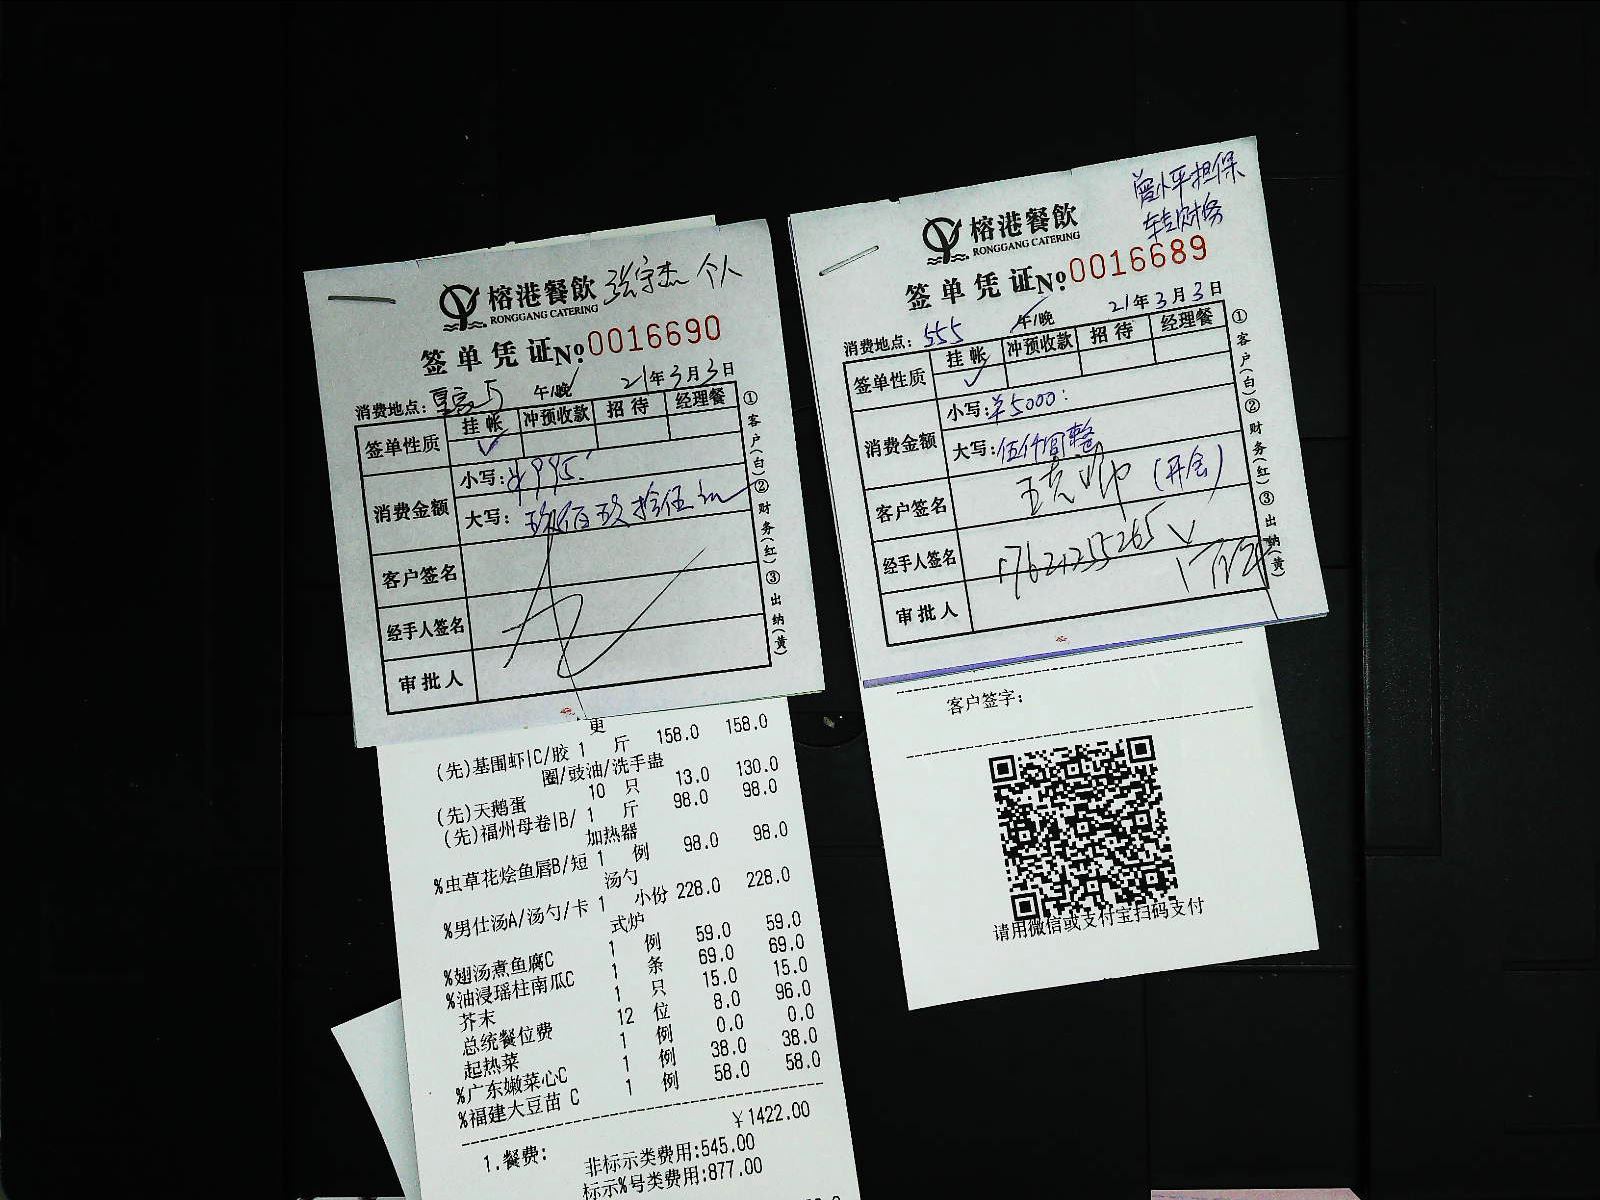 榕港餐飲 张宇杰 个人
RONGGANG CATERING
签单凭证 No 0016690
消费地点: 午/晚 21年3月3日
签单性质 挂帐 冲预收款 招待 经理餐
✓
消费金额 小写: ¥995.
大写: 玖佰玖拾伍元
客户签名
经手人签名
审批人
①客户(白)②财务(红)③出纳(黄)
更
(先)基围虾|C/胶 1 斤 158.0 158.0
圈/豉油/洗手盅
(先)天鹅蛋 10 只 13.0 130.0
(先)福州母卷|B/ 1 斤 98.0 98.0
加热器
%虫草花烩鱼唇B/短 1 例 98.0 98.0
汤勺
%男仕汤A/汤勺/卡 1 小份 228.0 228.0
式炉
%翅汤煮鱼腐C 1 例 59.0 59.0
%油浸瑶柱南瓜C 1 条 69.0 69.0
芥末 1 只 15.0 15.0
总统餐位费 12 位 8.0 96.0
起热菜 1 例 0.0 0.0
%广东嫩菜心C 1 例 38.0 38.0
%福建大豆苗 C 1 例 58.0 58.0
1.餐费: ¥1422.00
非标示类费用:545.00
标示%号类费用:877.00
曾小平担保
转财务
榕港餐飲
RONGGANG CATERING
签单凭证 No 0016689
消费地点: 555 午/晚 21年3月3日
签单性质 挂帐 冲预收款 招待 经理餐
✓
消费金额 小写: ¥5000:
大写: 伍仟圆整
客户签名 (开会)
经手人签名 17621255265
审批人
①客户(白)②财务(红)③出纳(黄)
客户签字:
请用微信或支付宝扫码支付